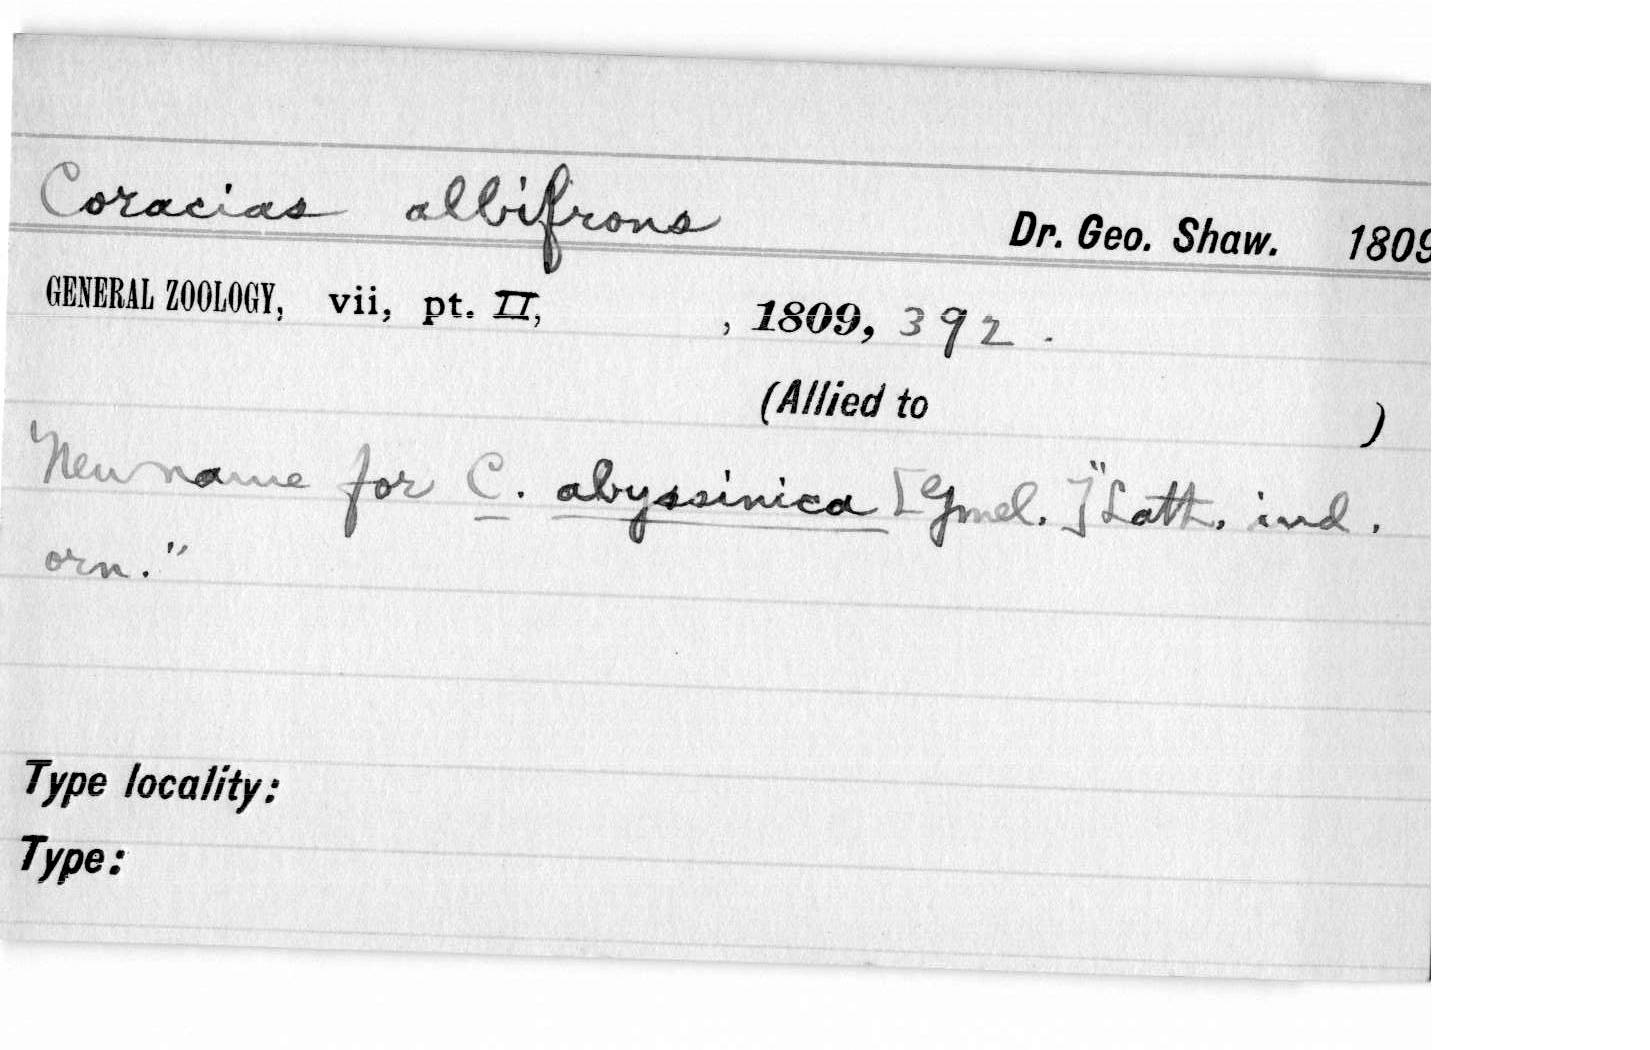 Coracias albifrons Dr. Geo. Shaw. 1809
GENERAL ZOOLOGY, vii, pt. II, , 1809, 392.
(Allied to )
New name for C. abyssinica [Gmel.] "Lath. ind.
orn."
Type locality:
Type: